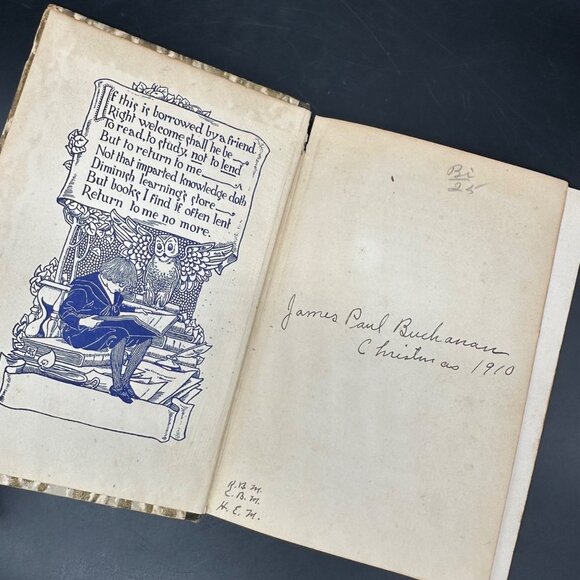 If this is borrowed by a friend
Right welcome shall he be
To read, to study, not to lend
But to return to me
Not that imparted knowledge doth
Diminish learning's store
But books I find if often lent
Return to me no more.
Bi
25
James Paul Buchanan
Christmas 1910
R. B. M.
C. B. M.
H. E. M.